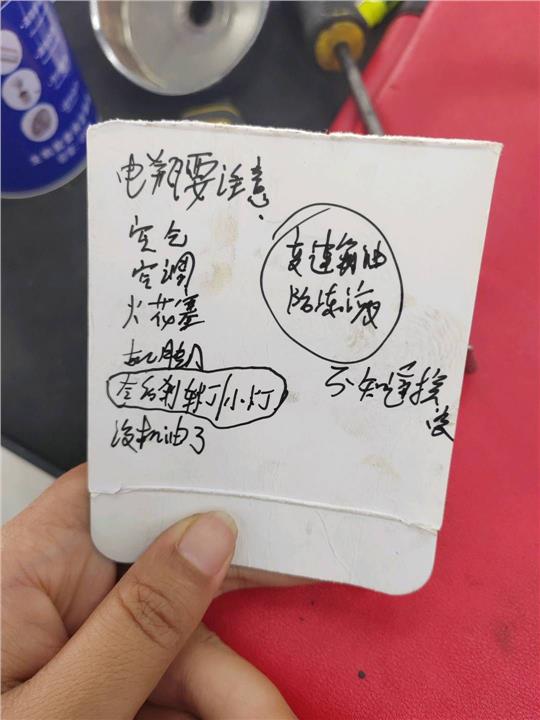 电瓶要注意
空气
空调
火花塞
机脚
左后刹车灯/小灯
没机油了
变速箱油
防冻液
不知道换
没